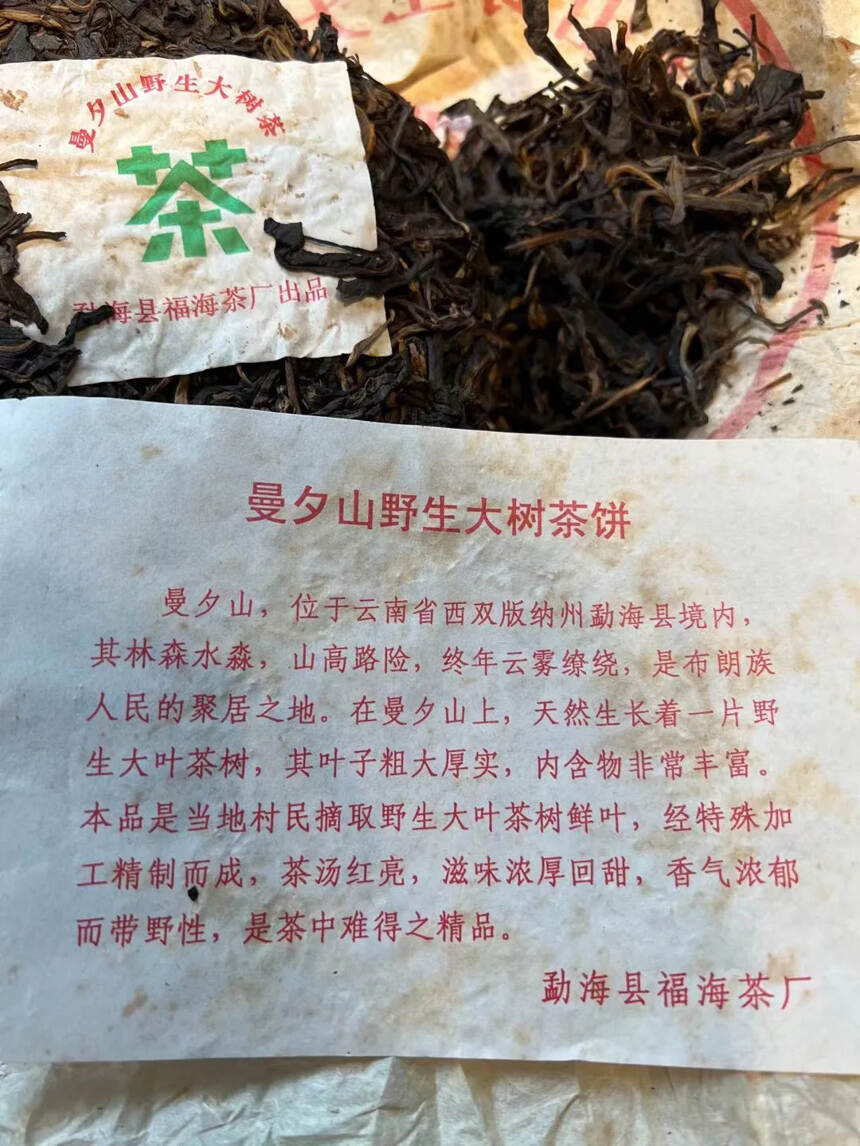 曼夕山野生大树茶
茶
勐海县福海茶厂出品
曼夕山野生大树茶饼
曼夕山，位于云南省西双版纳州勐海县境内，
其林森水淼，山高路险，终年云雾缭绕，是布朗族
人民的聚居之地。在曼夕山上，天然生长着一片野
生大叶茶树，其叶子粗大厚实，内含物非常丰富。
本品是当地村民摘取野生大叶茶树鲜叶，经特殊加
工精制而成，茶汤红亮，滋味浓厚回甜，香气浓郁
而带野性，是茶中难得之精品。
勐海县福海茶厂